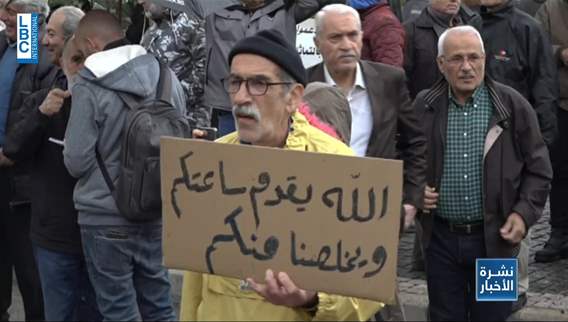 LBC
INTERNATIONAL
الله يقدم ساعتكم
ويخلصنا منكم
نشرة
الأخبار